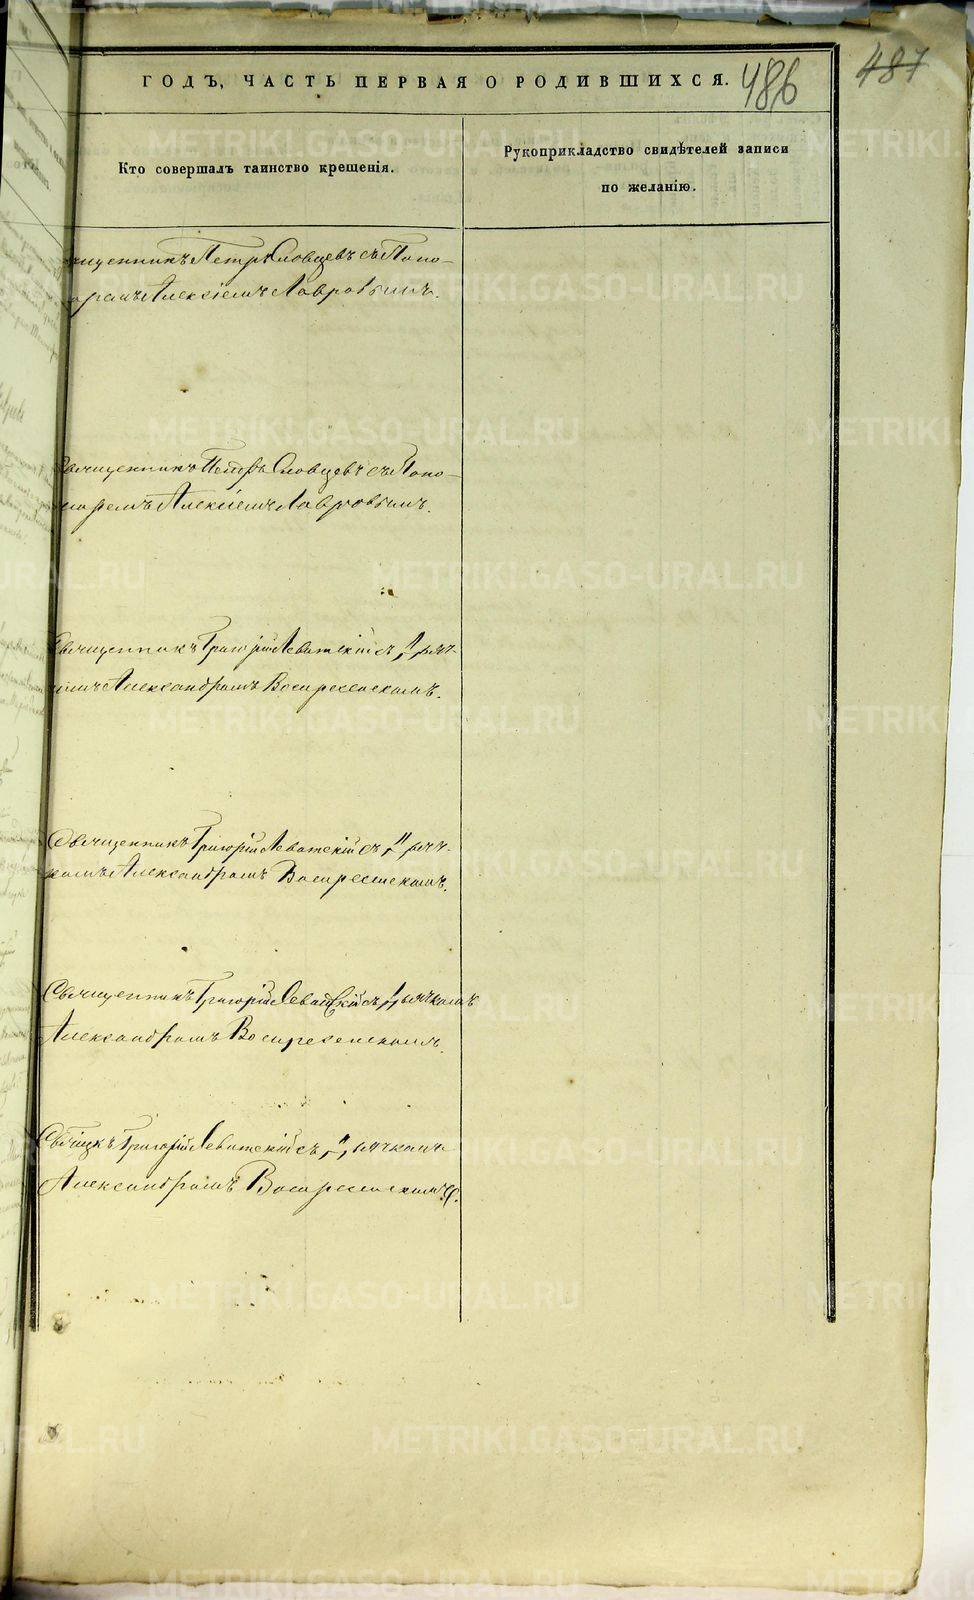 ГОДЪ, ЧАСТЬ ПЕРВАЯ О РОДИВШИХСЯ. 486 487
Кто совершалъ таинство крещенія.
Рукоприкладство свидѣтелей записи
по желанію.
Священникъ Петръ Словцевъ съ Поно-
маремъ Алексіемъ Лавровымъ.
Священникъ Петръ Словцевъ съ Поно-
маремъ Алексіемъ Лавровымъ.
Священникъ Григорій Левитскій съ Дьяч-
комъ Александромъ Воскресенскомъ.
Священникъ Григорій Левитскій съ Дьяч-
комъ Александромъ Воскресенскомъ.
Священникъ Григорій Левитскій съ Дьячкомъ
Александромъ Воскресенскомъ.
Григорій Левитскій съ Дьячкомъ
Александромъ Воскресенскомъ.
METRIKI.GASO-URAL.RU